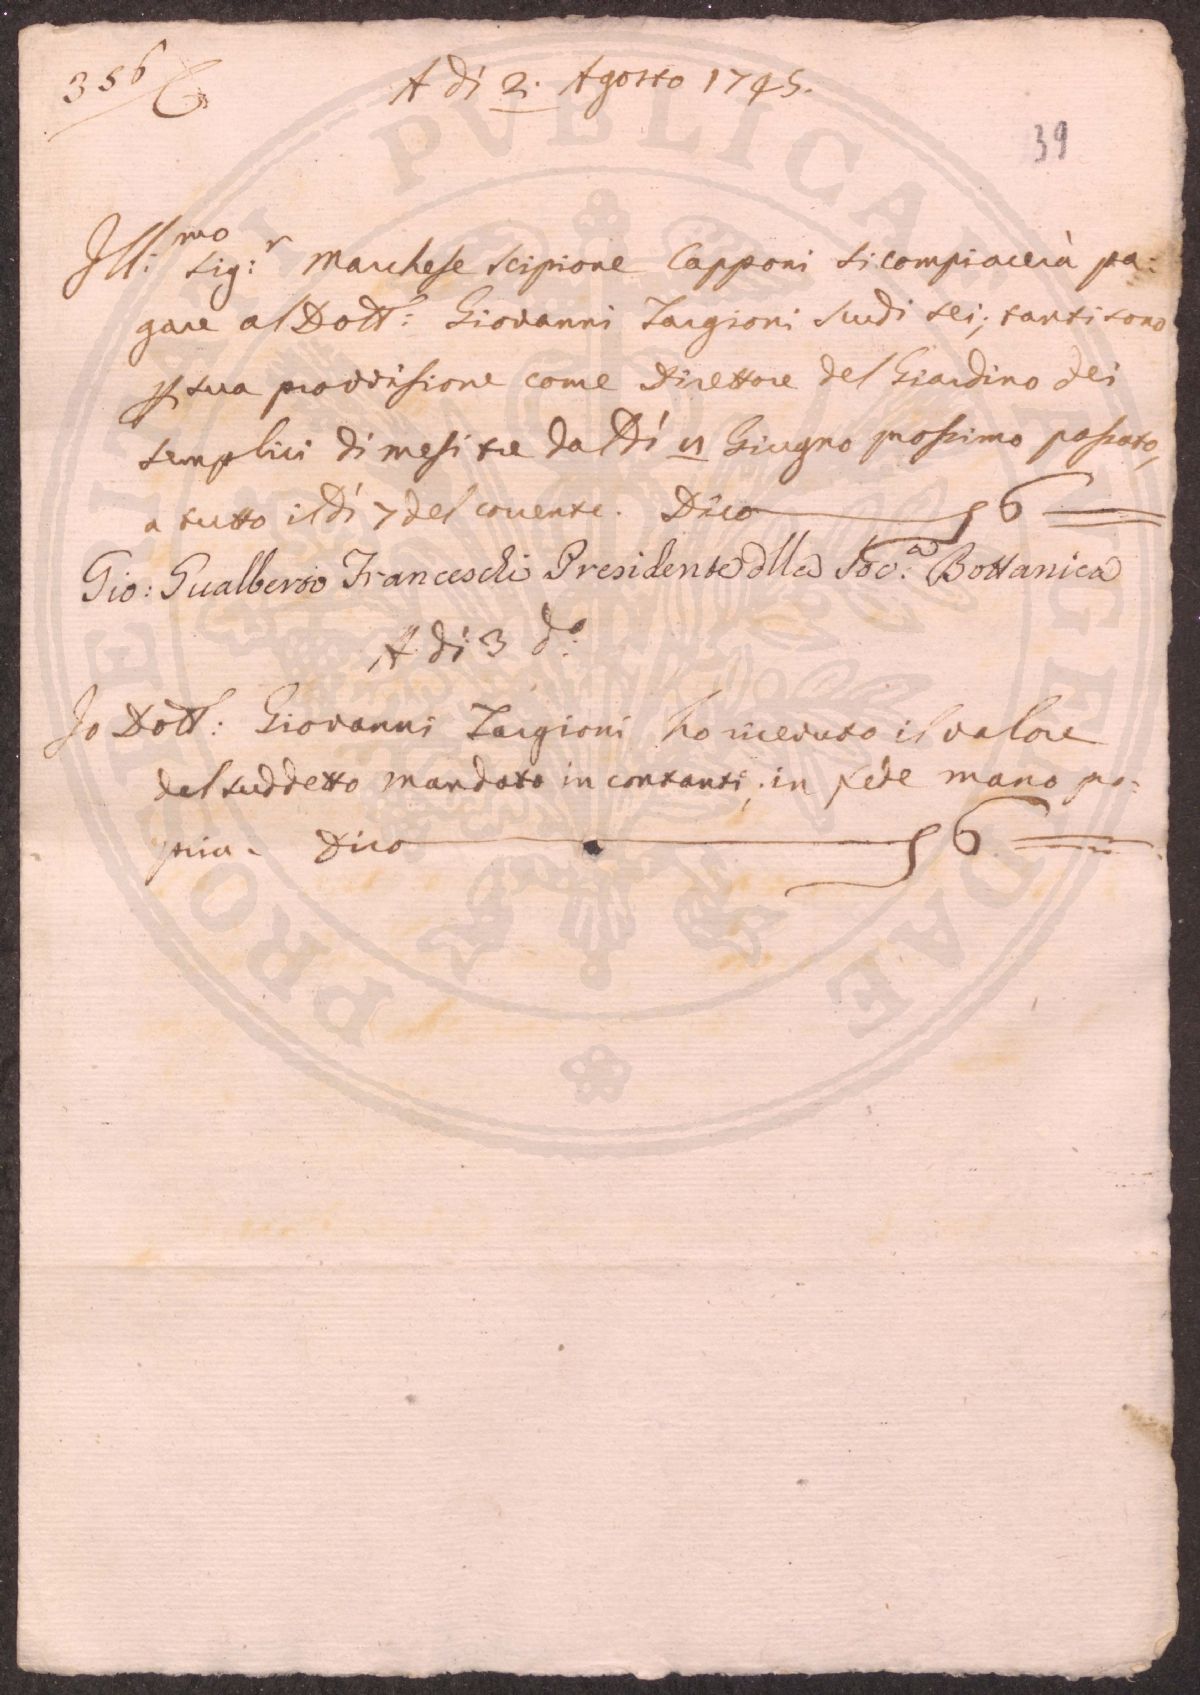 356
A dì 2. Agosto 1745.
39
Ill:mo Sig:r Marchese Scipione Capponi si compiacerà pa:
gare al Dott: Giovanni Targioni Scudi sei; tanti sono
p sua provvisione come Direttore del Giardino dei
Semplici di mesi tre dal Dì Giugno prossimo passato,
a tutto il dì 7 del corrente. Dico 6
Gio: Gualberto Franceschi Presidente dlla Soc:a Bottanica
A dì 3 do:
Io Dott: Giovanni Targioni ho ricevuto il valore
del suddetto mandato in contanti; in fede mano pro:
pria. Dico 6
PROSPERITATI PVBLICAE AVGENDAE